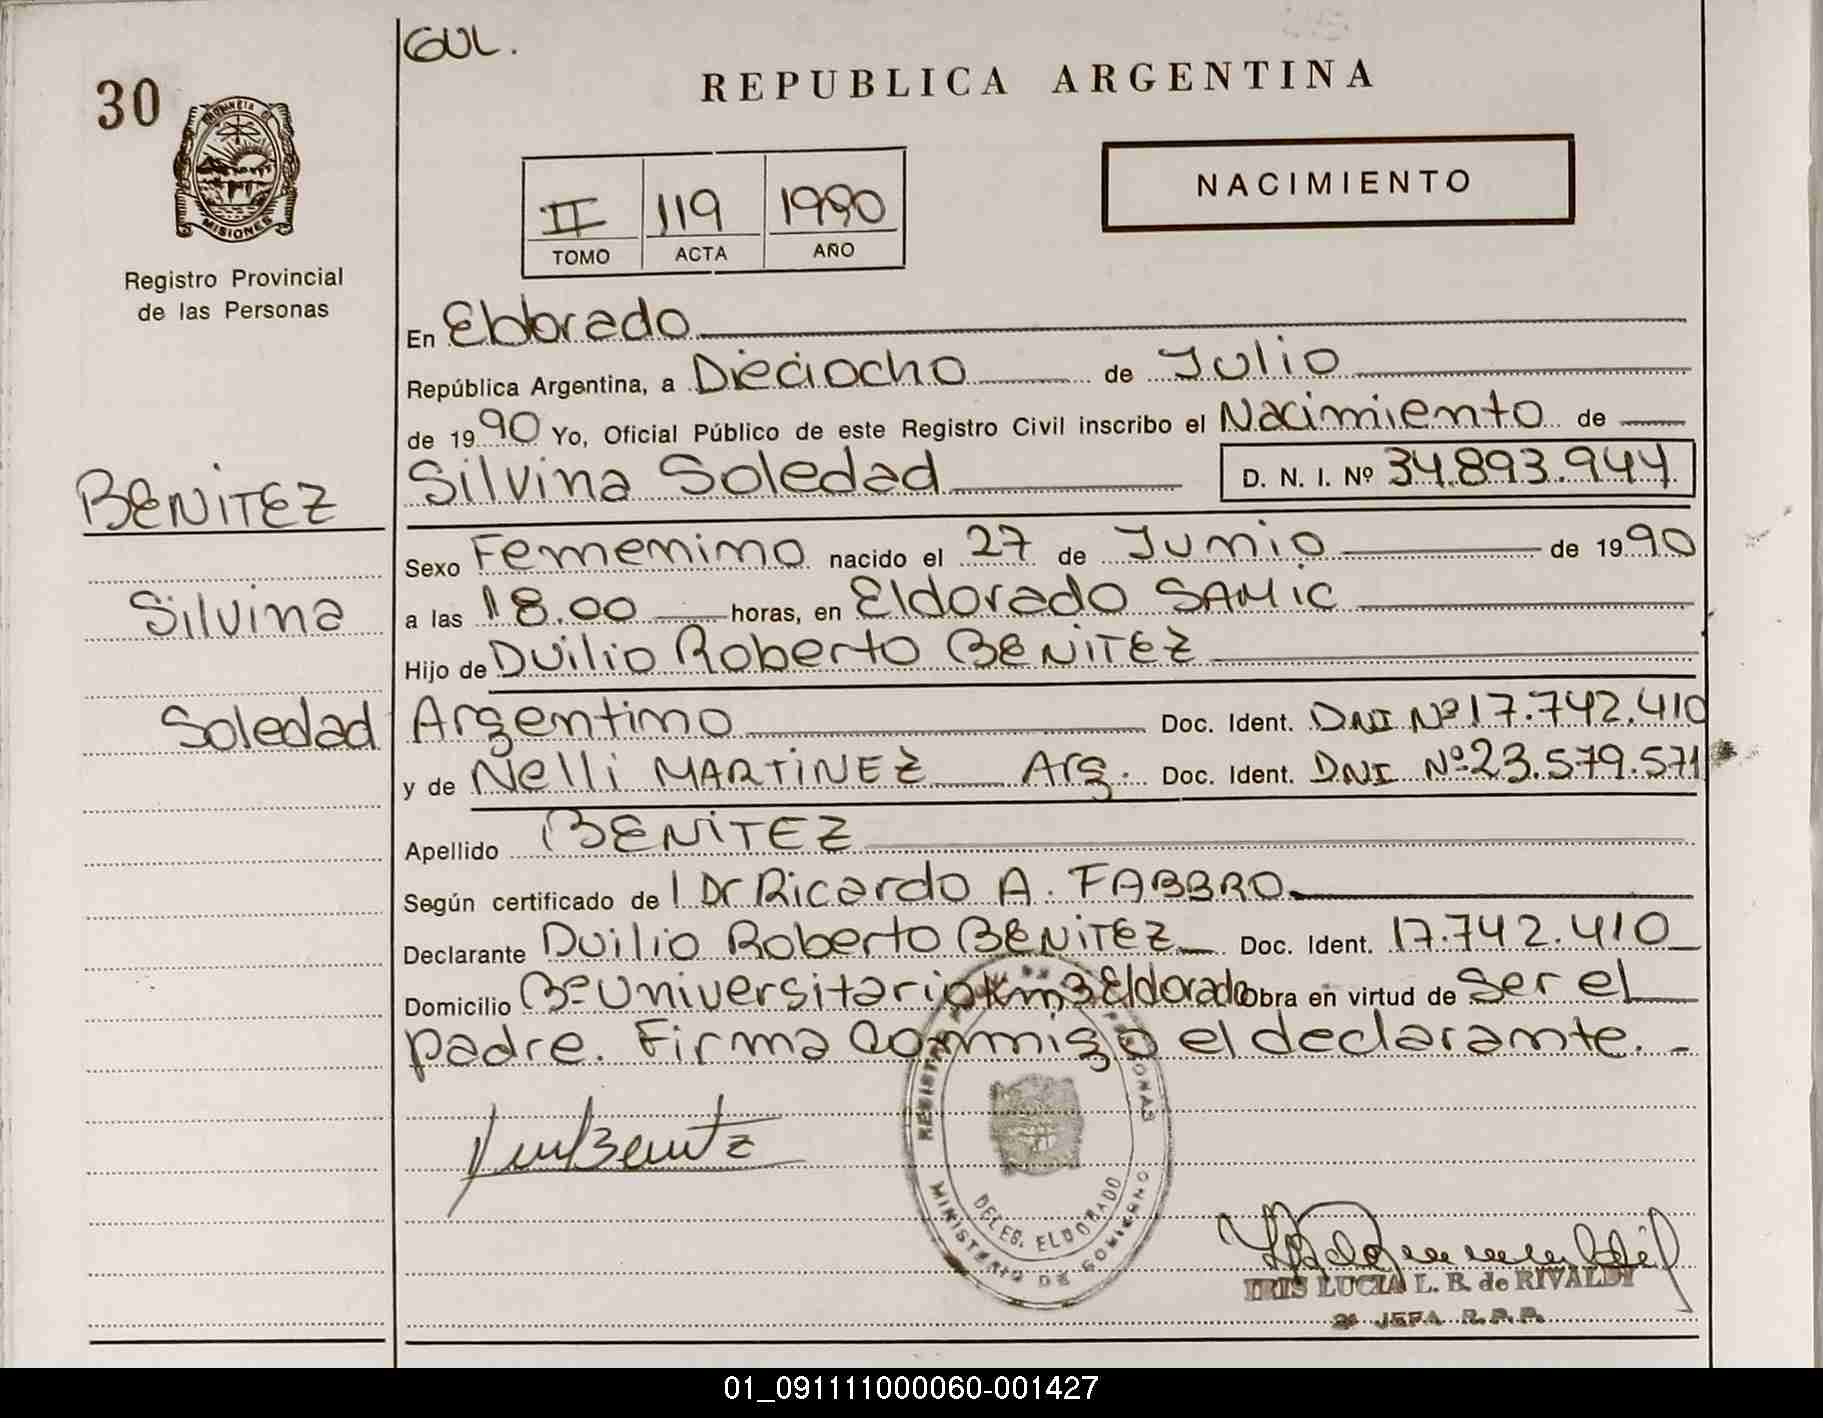 GUL.
30
REPUBLICA ARGENTINA
PROVINCIA DE
MISIONES
Registro Provincial
de las Personas
NACIMIENTO
II 119 1990
TOMO ACTA AÑO
En Eldorado
República Argentina, a Dieciocho de Julio
de 1990 Yo, Oficial Público de este Registro Civil inscribo el Nacimiento de
BENITEZ
Silvina Soledad D. N. I. Nº 34.893.944
Sexo Femenino nacido el 27 de Junio de 1990
Silvina
a las 18.00 horas, en Eldorado SAMiC
Hijo de Duilio Roberto BENITEZ
Soledad
Argentino Doc. Ident. DNI Nº 17.742.410
y de Nelli MARTINEZ Arg. Doc. Ident. DNI Nº 23.579.571
Apellido BENITEZ
Según certificado de l Dr Ricardo A. FABBRO
Declarante Duilio Roberto BENITEZ Doc. Ident. 17.742.410
Domicilio Bº Universitario Km 3 Eldorado Obra en virtud de Ser el
padre. Firma conmigo el declarante. -
DELEG. ELDORADO
MINISTERIO DE GOBIERNO
IRIS LUCIA L. B. de RIVALDI
2ª JEFA R.P.P.
01_091111000060-001427